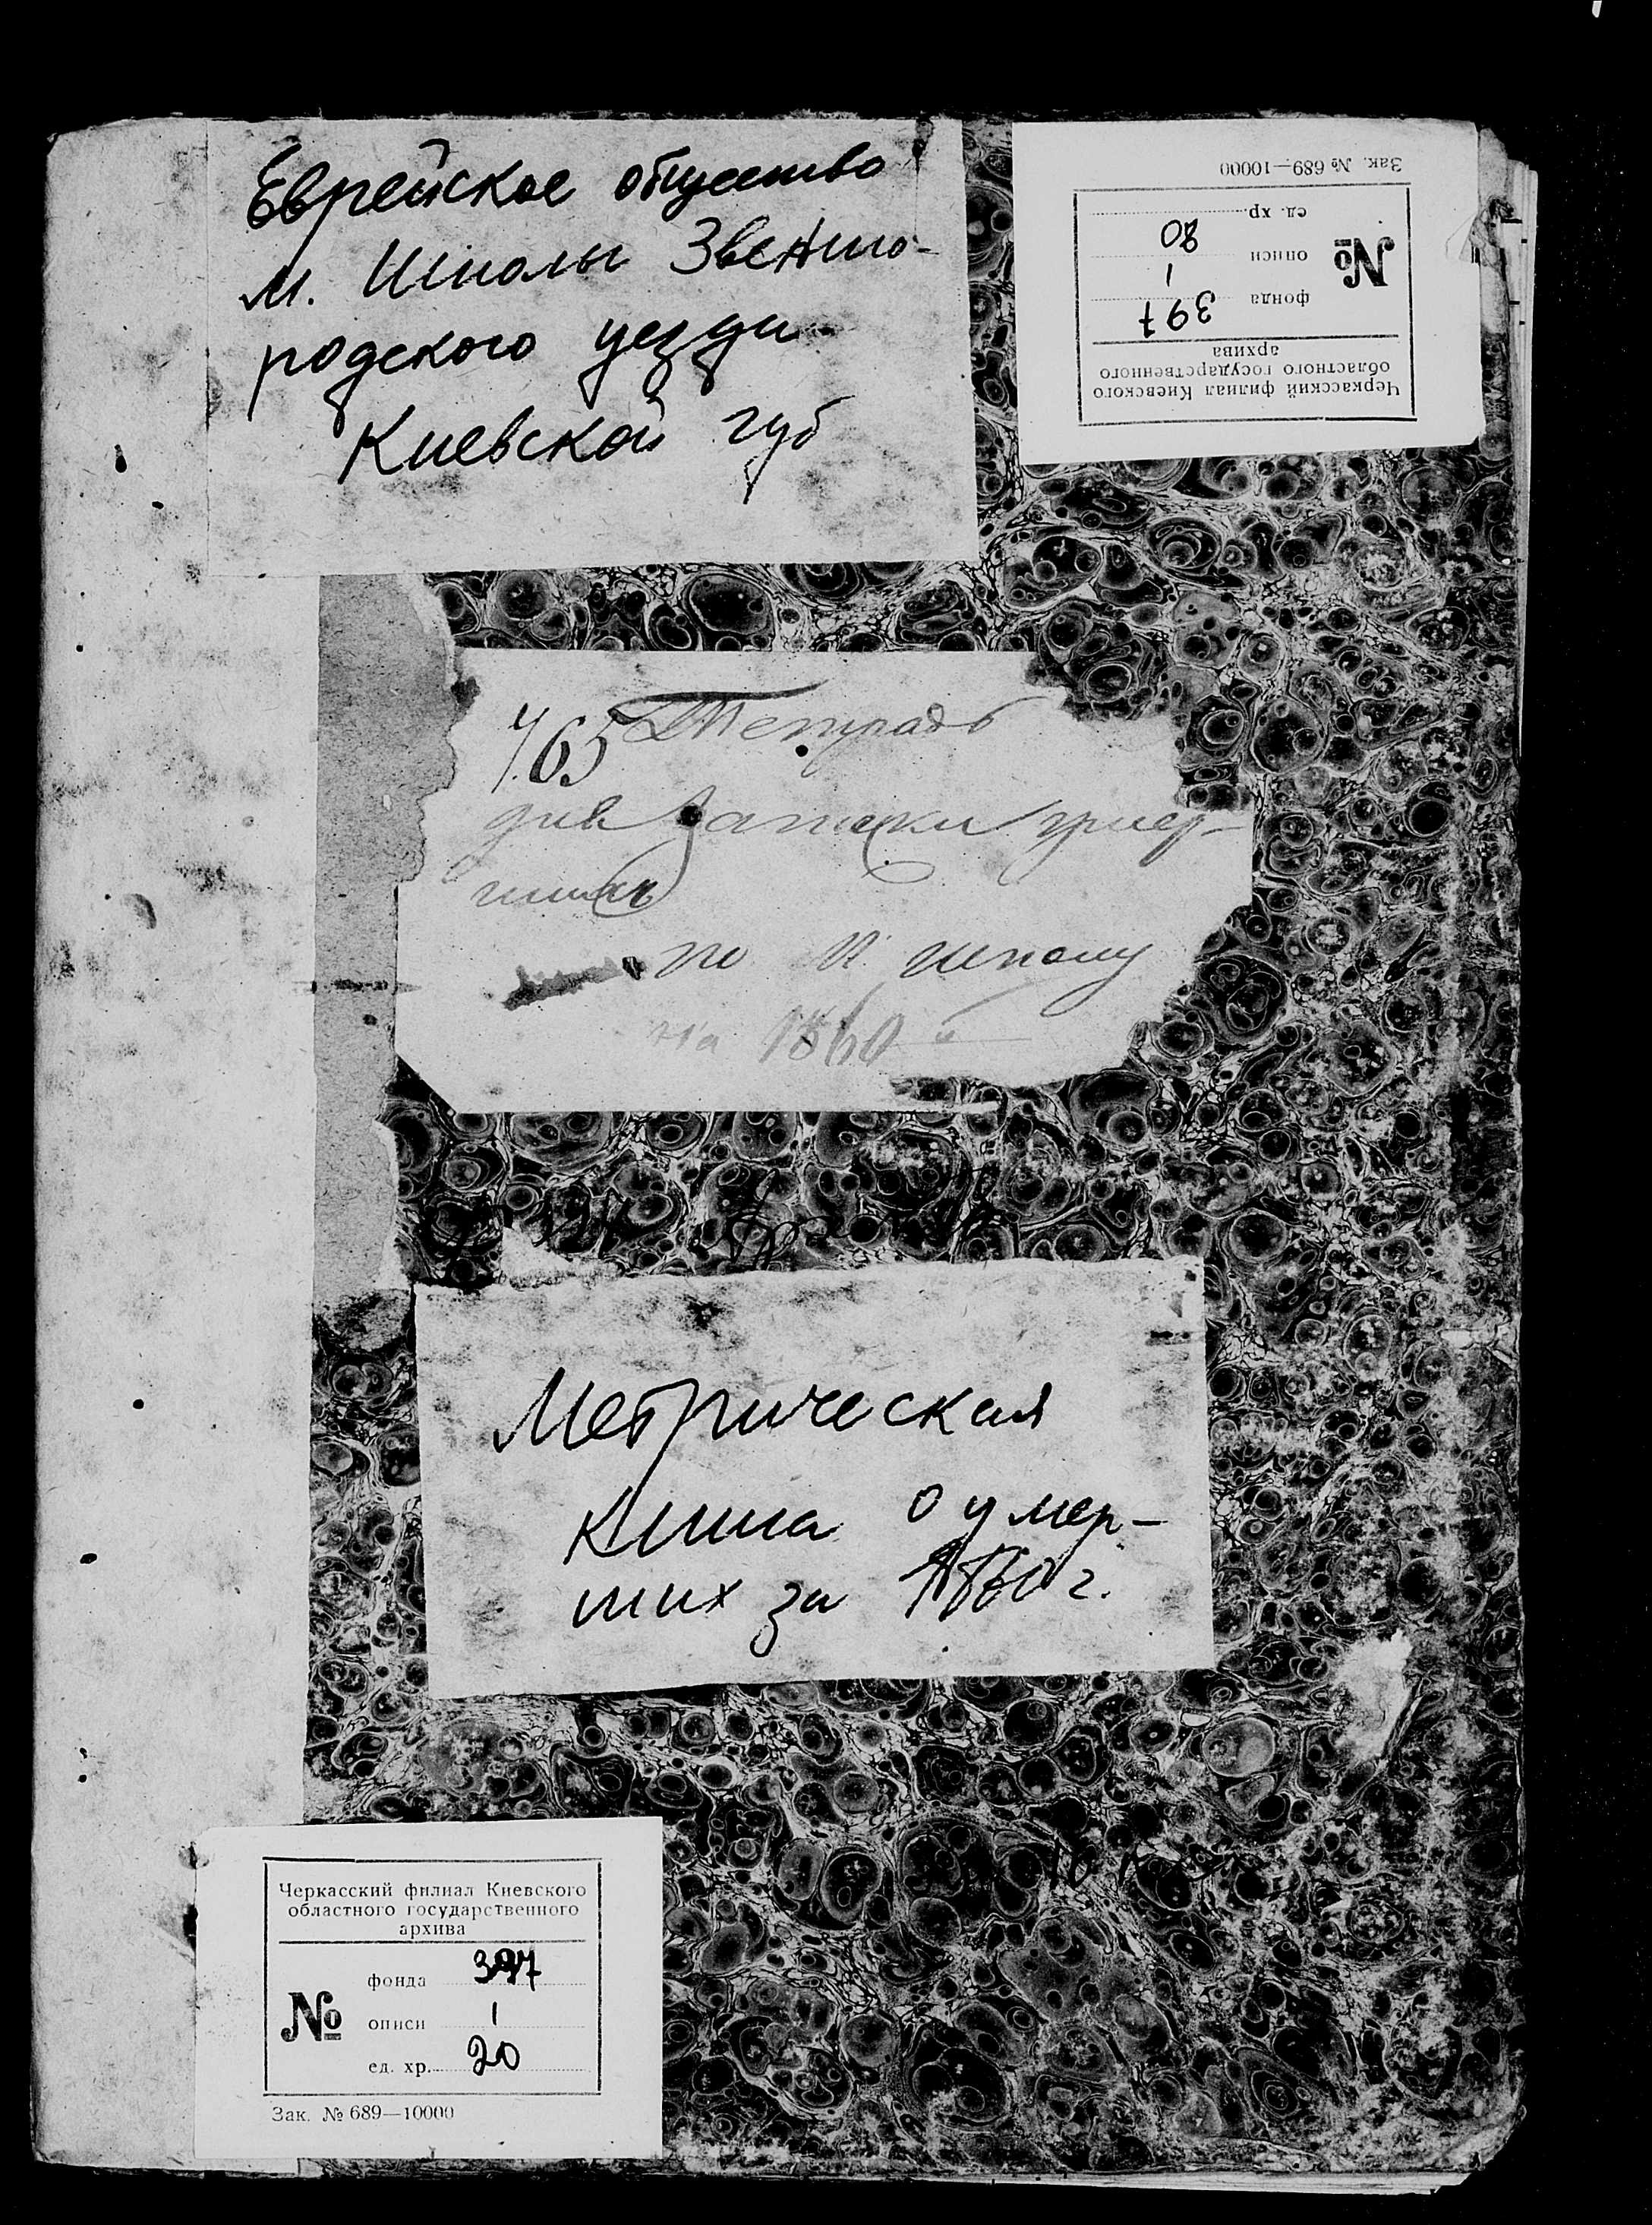 Еврейское общество
м. Шполы Звениго-
родского уезда
Киевской губ
Зак. № 689—10000
Черкасский филиал Киевского
областного государственного
архива
№
фонда 397
описи 1
ед. хр. 20
465 Тетрадь
для записки умер-
шихъ
по м. Шполу
на 1860
Метрическая
книга о умер-
ших за 1860 г.
Черкасский филиал Киевского
областного государственного
архива
№
фонда 397
описи 1
ед. хр. 20
Зак. № 689—10000